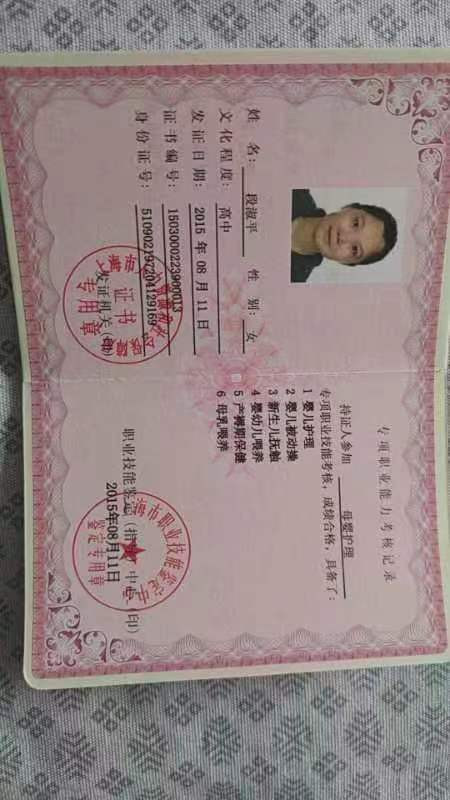 姓 名：段淑平 性 别：女
文化程度：高中
发证日期：2015 年 08 月 11 日
证书编号：1503000223900013
身份证号：510902197204129169
发证机关（印）
证书
专用章
专项职业能力考核记录
持证人参加 母婴护理
专项职业技能考核，成绩合格，具备了：
1 婴儿护理
2 婴儿被动操
3 新生儿抚触
4 婴幼儿喂养
5 产褥期保健
6 母乳喂养
职业技能鉴定（指导）中心（印）
2015年08月11日
上海市职业技能鉴定中心
鉴定专用章